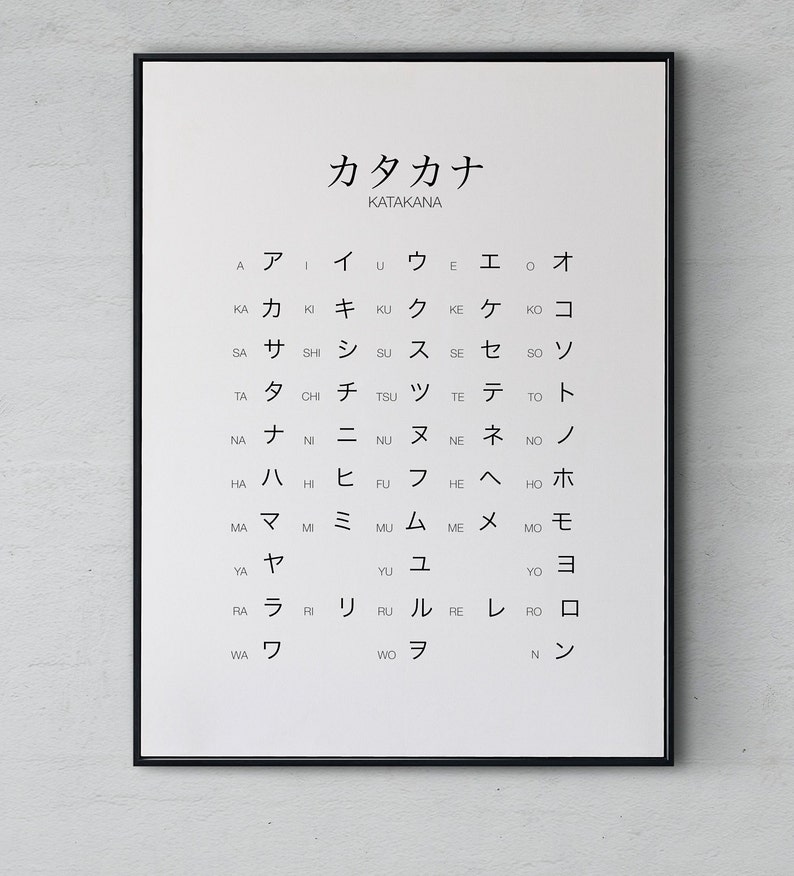 カタカナ
KATAKANA
A ア I イ U ウ E エ O オ
KA カ KI キ KU ク KE ケ KO コ
SA サ SHI シ SU ス SE セ SO ソ
TA タ CHI チ TSU ツ TE テ TO ト
NA ナ NI ニ NU ヌ NE ネ NO ノ
HA ハ HI ヒ FU フ HE ヘ HO ホ
MA マ MI ミ MU ム ME メ MO モ
YA ヤ YU ユ YO ヨ
RA ラ RI リ RU ル RE レ RO ロ
WA ワ WO ヲ N ン